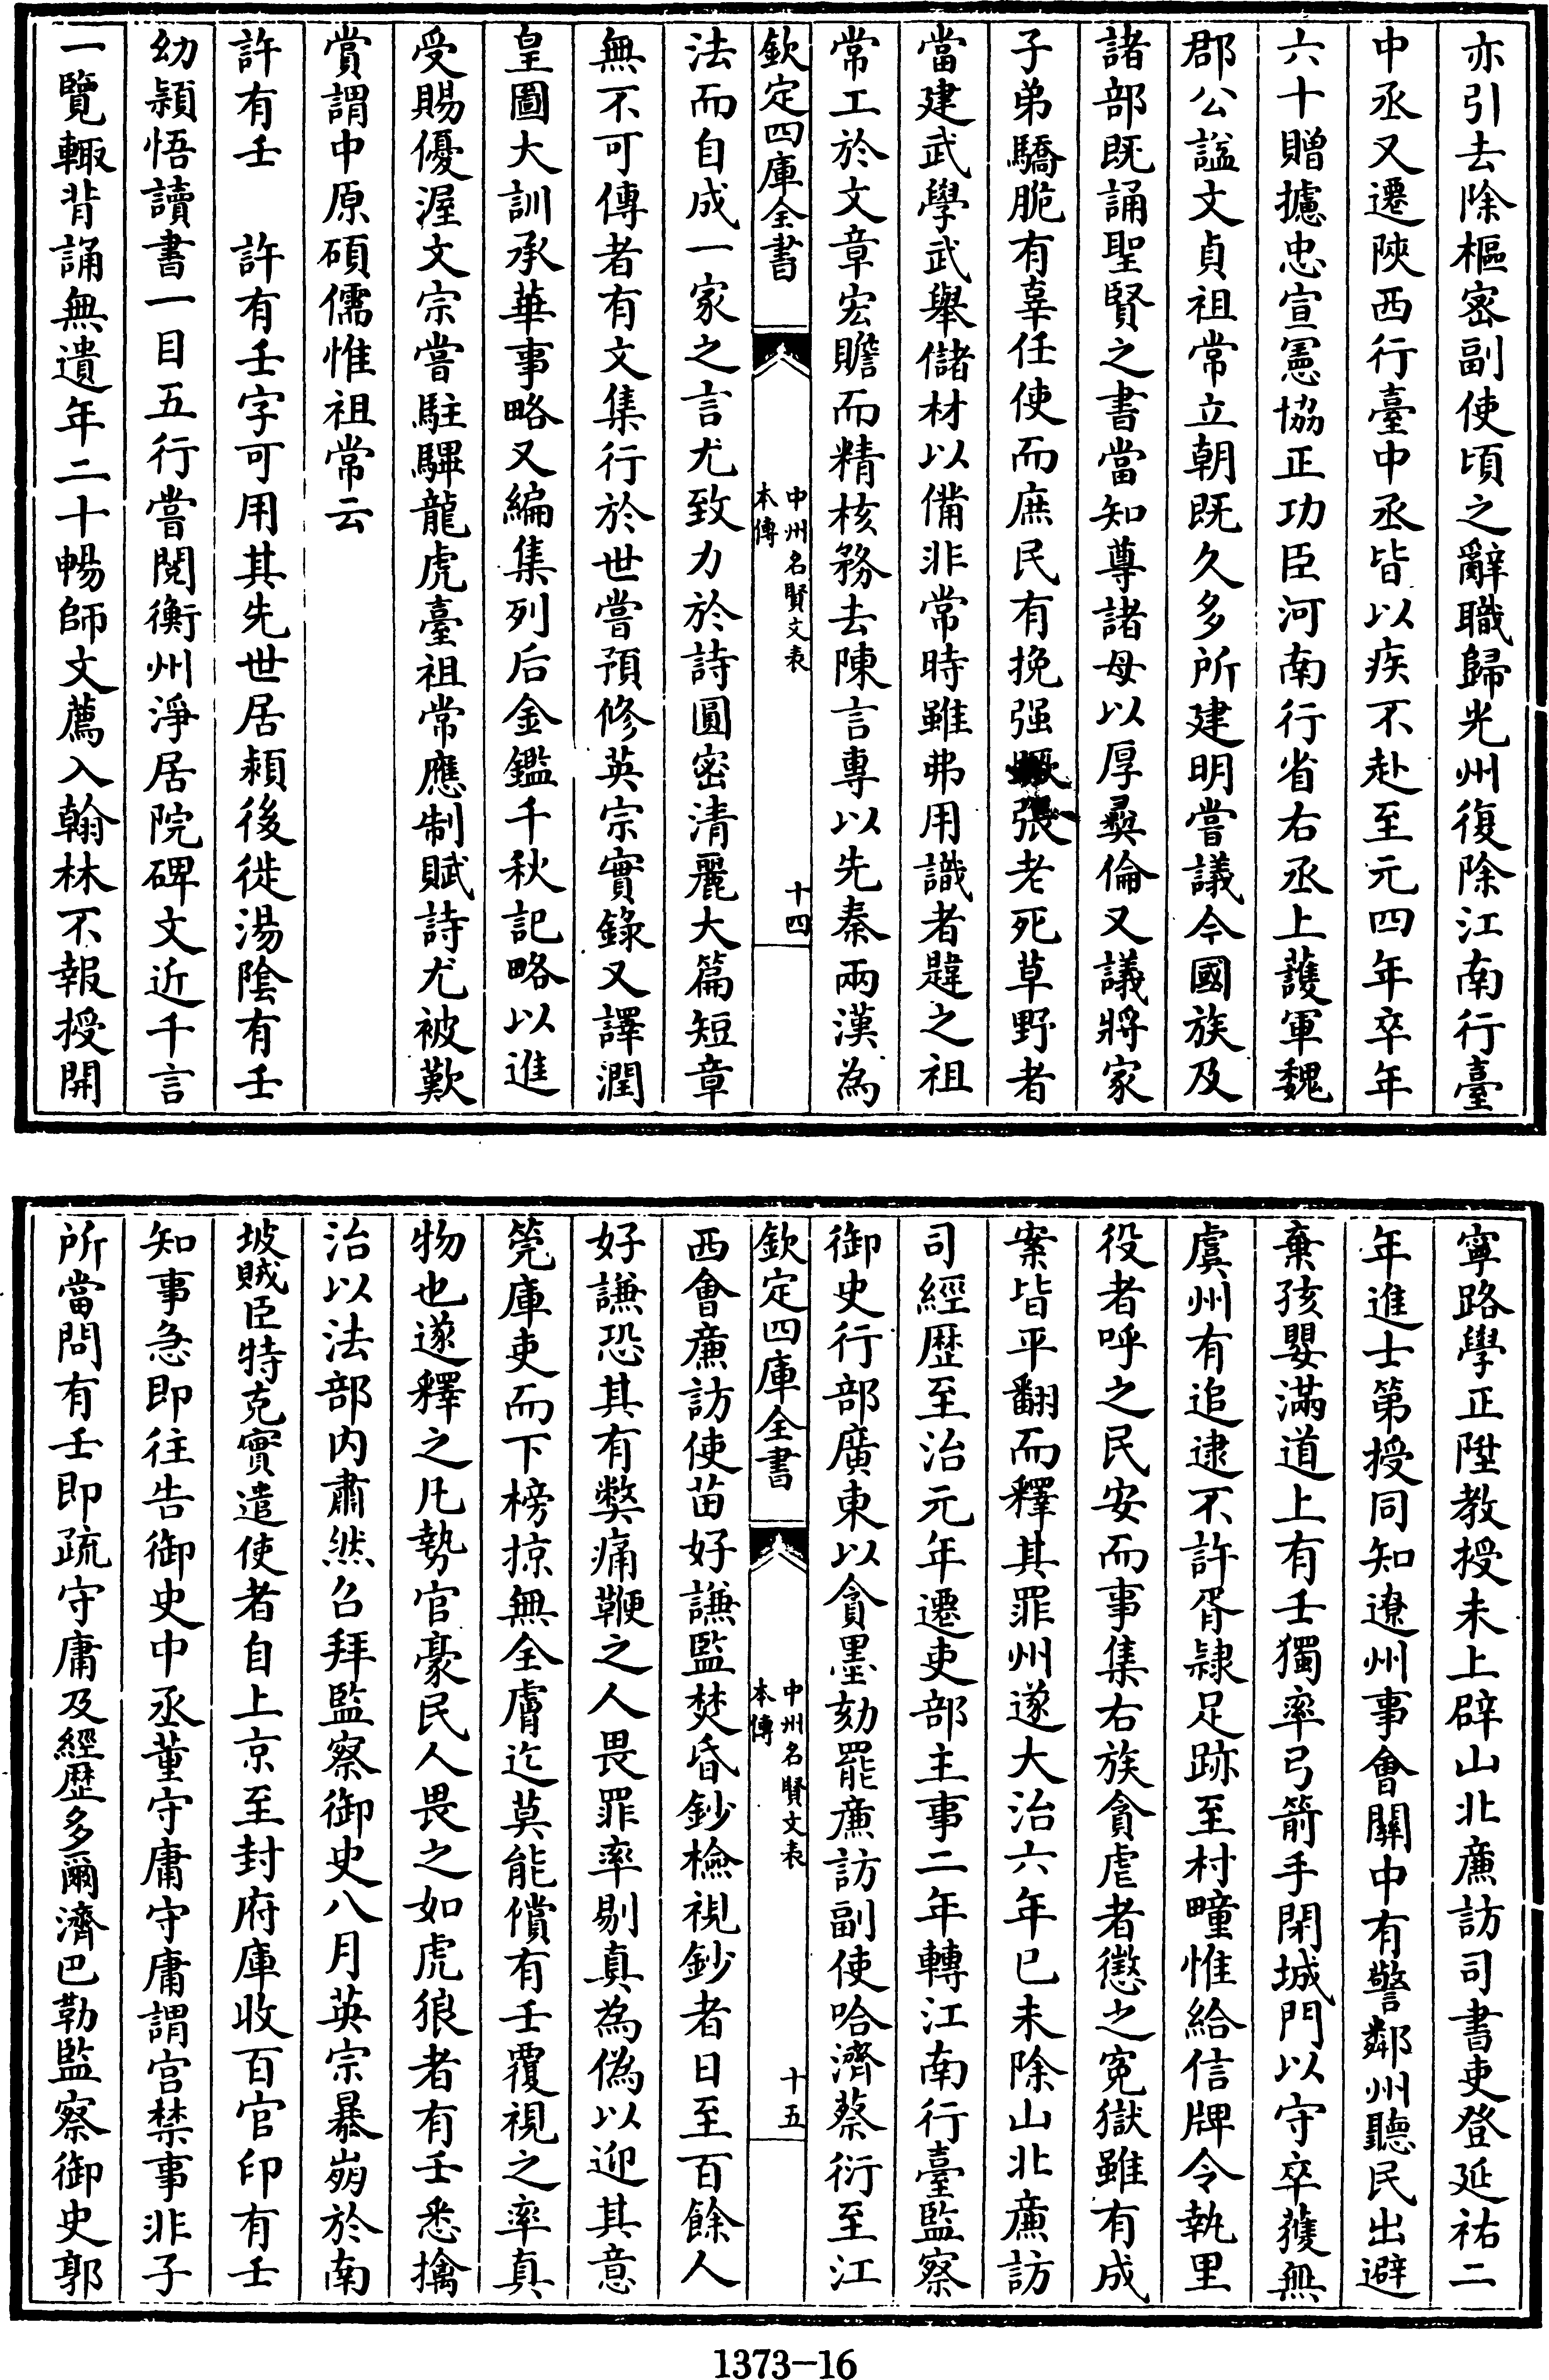 亦引去除樞密副使頃之辭職歸光州復除江南行臺
中丞又遷陜西行臺中丞皆以疾不赴至元四年卒年
六十贈攄忠宣憲協正功臣河南行省右丞上護軍魏
郡公諡文貞祖常立朝既久多所建明嘗議今國族及
諸部既誦聖賢之書當知尊諸母以厚彛倫又議將家
子弟驕脆有辜任使而庶民有挽强蹶張老死草野者
當建武學武舉儲材以備非常時雖弗用識者韙之祖
常工於文章宏贍而精核務去陳言專以先秦兩漢為
欽定四庫全書
中州名賢文表
本傳
十四
法而自成一家之言尤致力於詩圓密清麗大篇短章
無不可傳者有文集行於世嘗預修英宗實錄又譯潤
皇圖大訓承華事略又編集列后金鑑千秋記略以進
受賜優渥文宗嘗駐驆龍虎臺祖常應制賦詩尤被歎
賞謂中原碩儒惟祖常云
許有壬　許有壬字可用其先世居潁後徙湯陰有壬
幼穎悟讀書一目五行嘗閱衡州淨居院碑文近千言
一覽輙背誦無遺年二十暢師文薦入翰林不報授開
寧路學正陞教授未上辟山北廉訪司書吏登延祐二
年進士第授同知遼州事會關中有警鄰州聽民出避
棄孩嬰滿道上有壬獨率弓箭手閉城門以守卒獲無
虞州有追逮不許胥隷足跡至村疃惟給信牌令執里
役者呼之民安而事集右族貪虐者懲之寃獄雖有成
案皆平翻而釋其罪州遂大治六年已未除山北廉訪
司經歴至治元年遷吏部主事二年轉江南行臺監察
御史行部廣東以貪墨劾罷廉訪副使哈濟蔡衍至江
欽定四庫全書
中州名賢文表
本傳
十五
西會廉訪使苗好謙監焚昏鈔檢視鈔者日至百餘人
好謙恐其有弊痛鞭之人畏罪率剔真為偽以迎其意
筦庫吏而下榜掠無全膚迄莫能償有壬覆視之率真
物也遂釋之凡勢官豪民人畏之如虎狼者有壬悉擒
治以法部内肅然召拜監察御史八月英宗暴崩於南
坡賊臣特克實遣使者自上京至封府庫收百官印有壬
知事急即往告御史中丞董守庸守庸謂宫禁事非子
所當問有壬即疏守庸及經歴多爾濟巴勒監察御史郭
1373-16